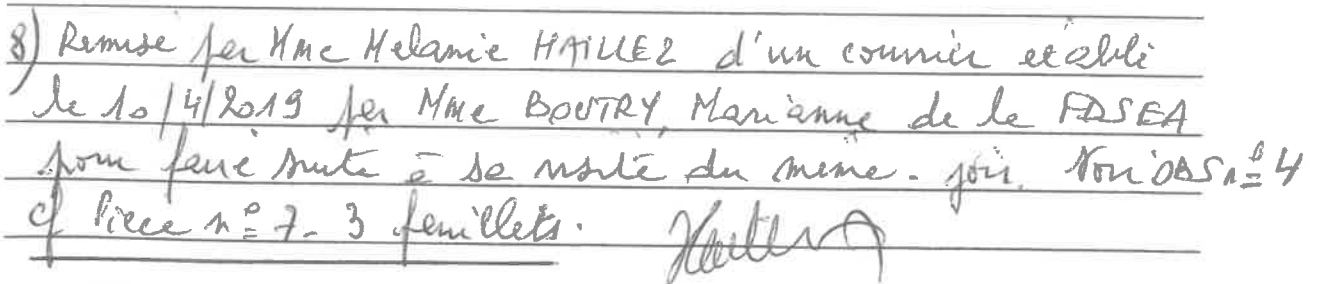 8) Remise par Mme Melanie HAILLEZ d'un courrier etabli
le 10/4/2019 par Mme BOUTRY, Marianne de la FDSEA
pour faire suite à sa visite du meme. jour. Voir OBS n° 4
cf Piece n° 7- 3 feuillets.